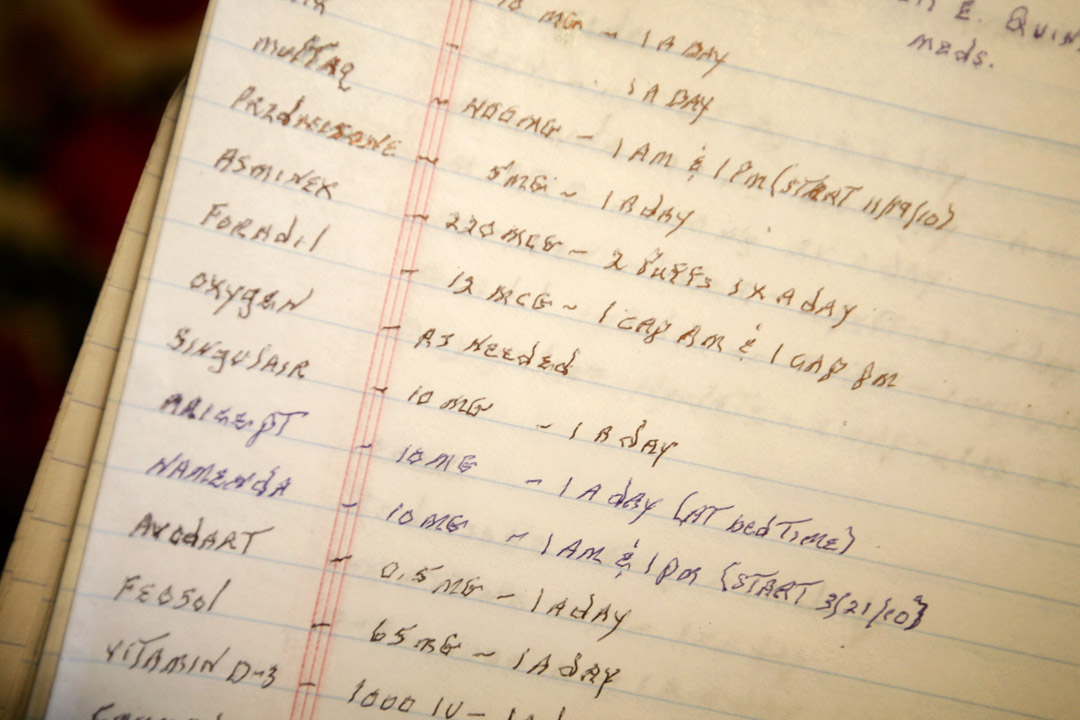 E. QUIN
meds.
10 MG - 1 A DAY
- 1 A DAY
MULTAQ - 400 MG - 1 AM & 1 PM (START 11/19/10)
PREDNISONE - 5 MG - 1 A dAY
ASMINEX - 220 MCG - 2 PUFFS 1 X A dAY
FORAdil - 12 MCG - 1 CAP AM & 1 CAP PM
OXYGEN - AS NEEdEd
SINGULAIR - 10 MG - 1 A dAY
ARICEPT - 10 MG - 1 A dAY (AT bEdTIME)
NAMENdA - 10 MG - 1 AM & 1 PM {START 3/21/10}
AVOdART - 0.5 MG - 1 A dAY
FEOSOl - 65 MG - 1 A dAY
VITAMIN D-3 - 1000 IU - 1 A